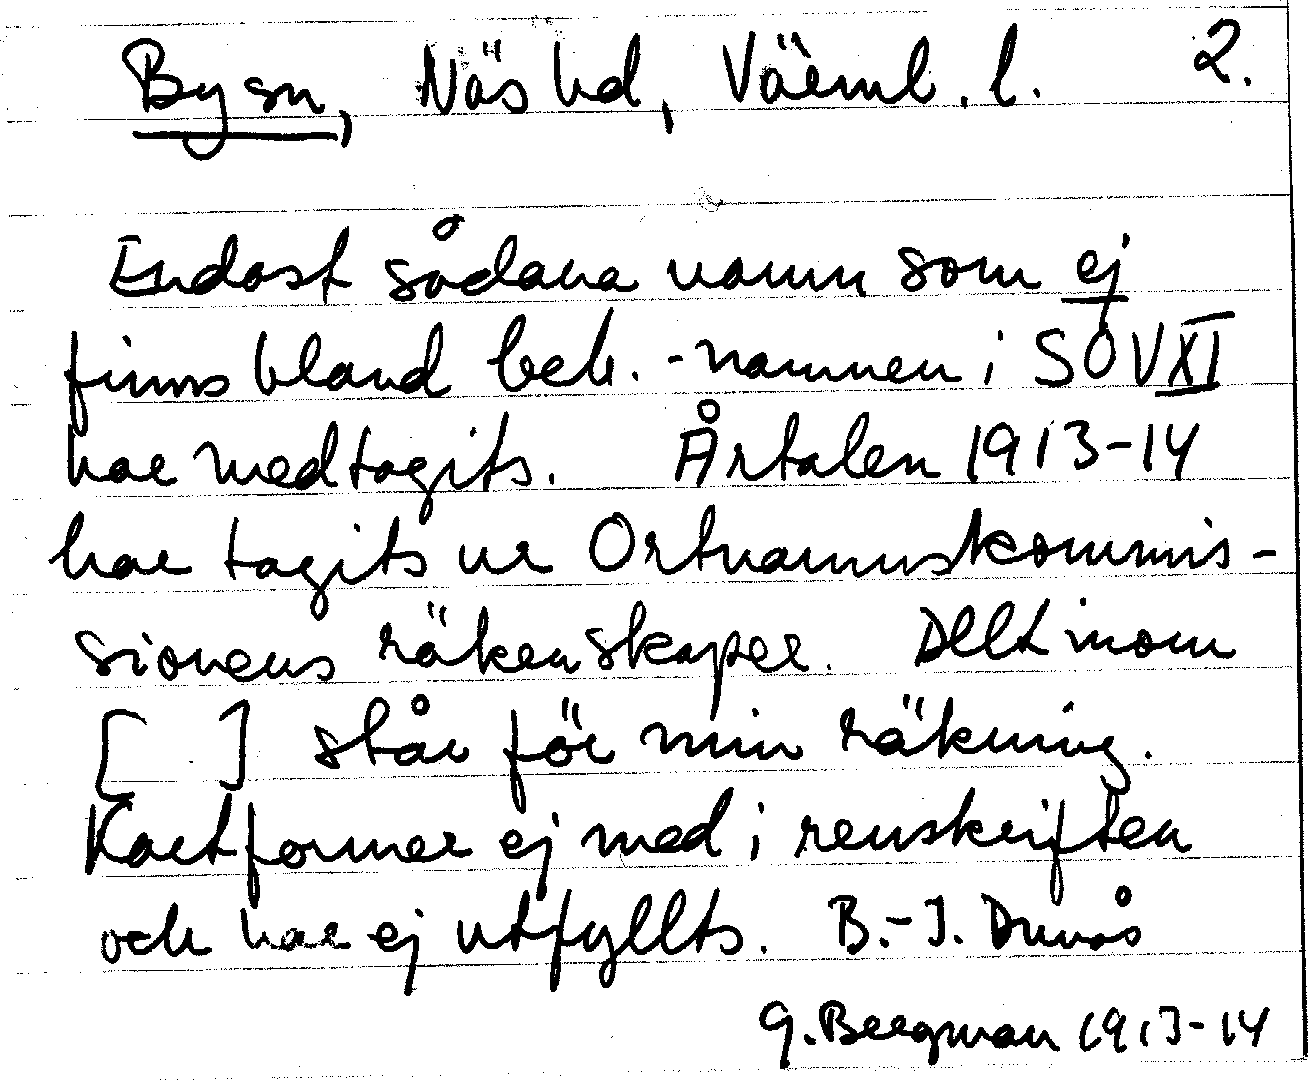 By sn, Näs hd, Värml. l. 2.
Endast sådana namn som ej
finns bland beb.-namnen i SOV XI
har medtagits. Årtalen 1913-14
har tagits ur Ortnamnskommis-
sionens räkenskaper. Allt inom
[ ] står för min räkning.
Kartformer ej med i renskriften
och har ej utfyllts. B.-I. Dunås
G. Bergman 1913-14